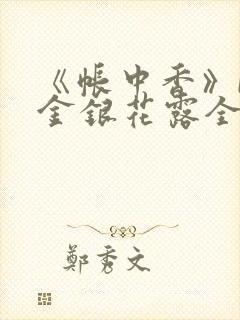 《帳中香》
金銀花露全
鄭秀文